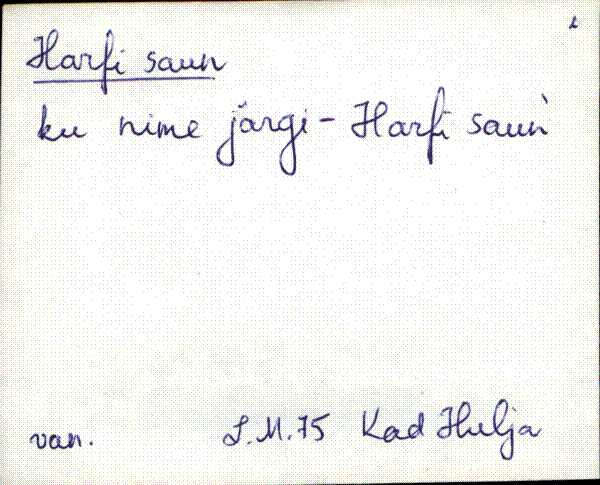 Harfi saun
ku nime järgi - Harfi saun̄
van. L.M.75 Kad Hulja